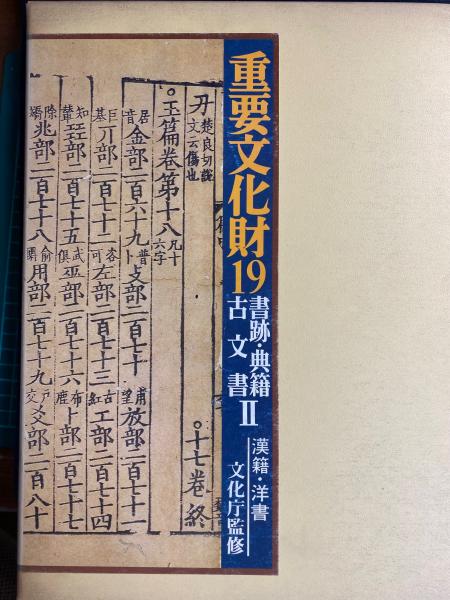 重要文化財19
書跡・典籍
古文書 II
漢籍・洋書
文化庁監修
楚良切說文云傷也 ○十七卷終
○玉篇卷第十八 凡十六字
居音 金部二百六十九 普卜 攴部二百七十 甫望 放部二百七十一
巨基 丌部二百七十二 可 左部二百七十三 古紅 工部二百七十四
知輦 㠭部二百七十五 武俱 巫部二百七十六 布 卜部二百七十七
除矯 兆部二百七十八 俞 用部二百七十九 戶交 爻部二百八十